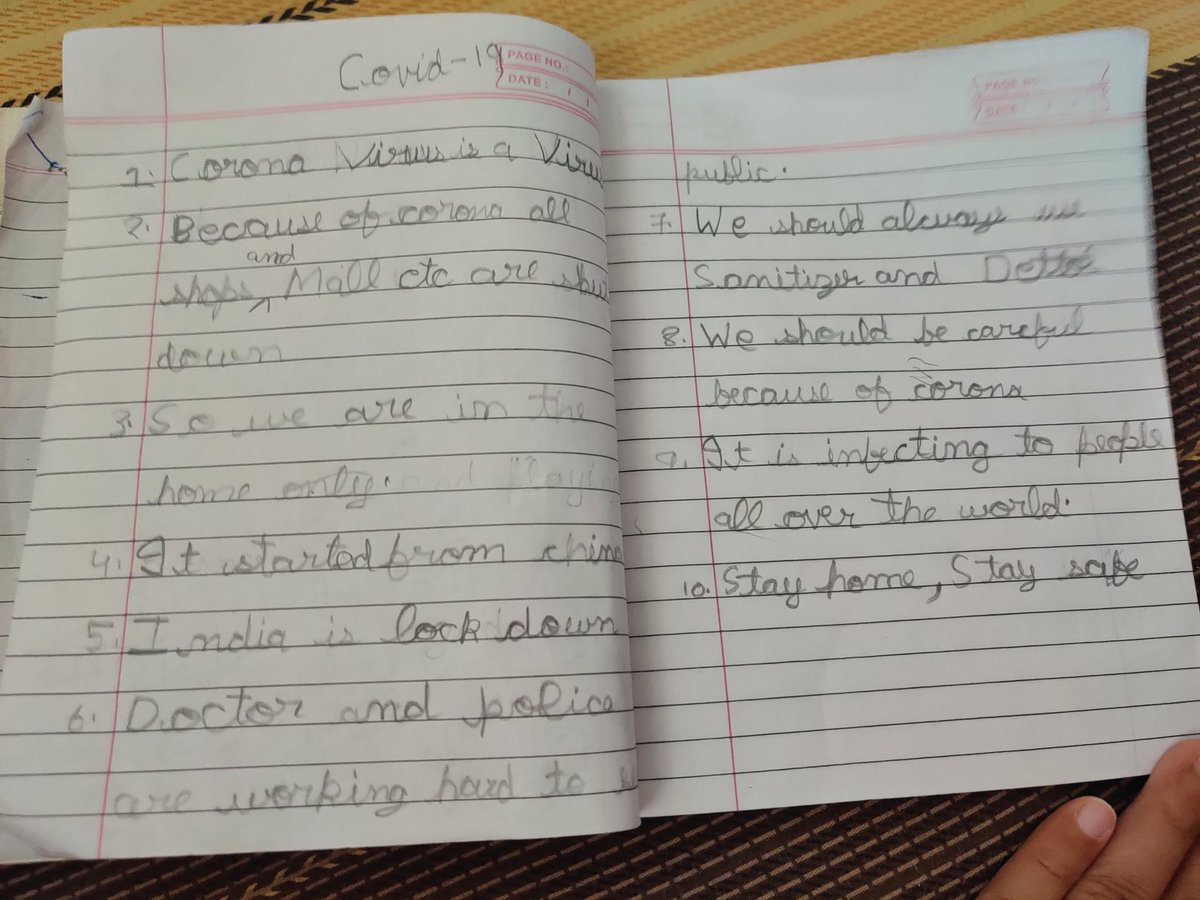 Covid-19
PAGE NO.:
DATE: / /
1. Corona Virus is a Viru
2. Because of corona all
and
shops ^ Mall etc are shu
down
3. So we are in the
home only. and playi
4. It started from chin
5. India is lock down
6. Doctor and police
are working hard to
PAGE NO.
DATE
public.
7. We should alway
Sanitizer and
8. We should be careful
because of corona
9. It is infecting to people
all over the world.
10. Stay home, Stay safe